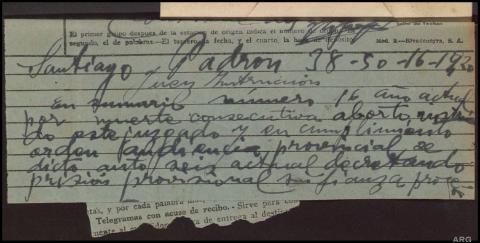 El primer grupo después de la estación de origen indica el número del
segundo, el de palabras. - El tercero la fecha, y el cuarto, la hora de depósito.
Mod. 2.-Rivadeneyra, S. A.
Santiago Padron 38-50-16-19
Juez Instrucción
En sumario número 16 año actual
por muerte consecutiva aborto
este juzgado y en cumplimiento
orden audiencia provincial se
dictó auto seis actual decretando
prisión provisional sin fianza
tas, y por cada palabra
Telegramas con acuse de recibo. - Sirve para
de entrega al
ARG